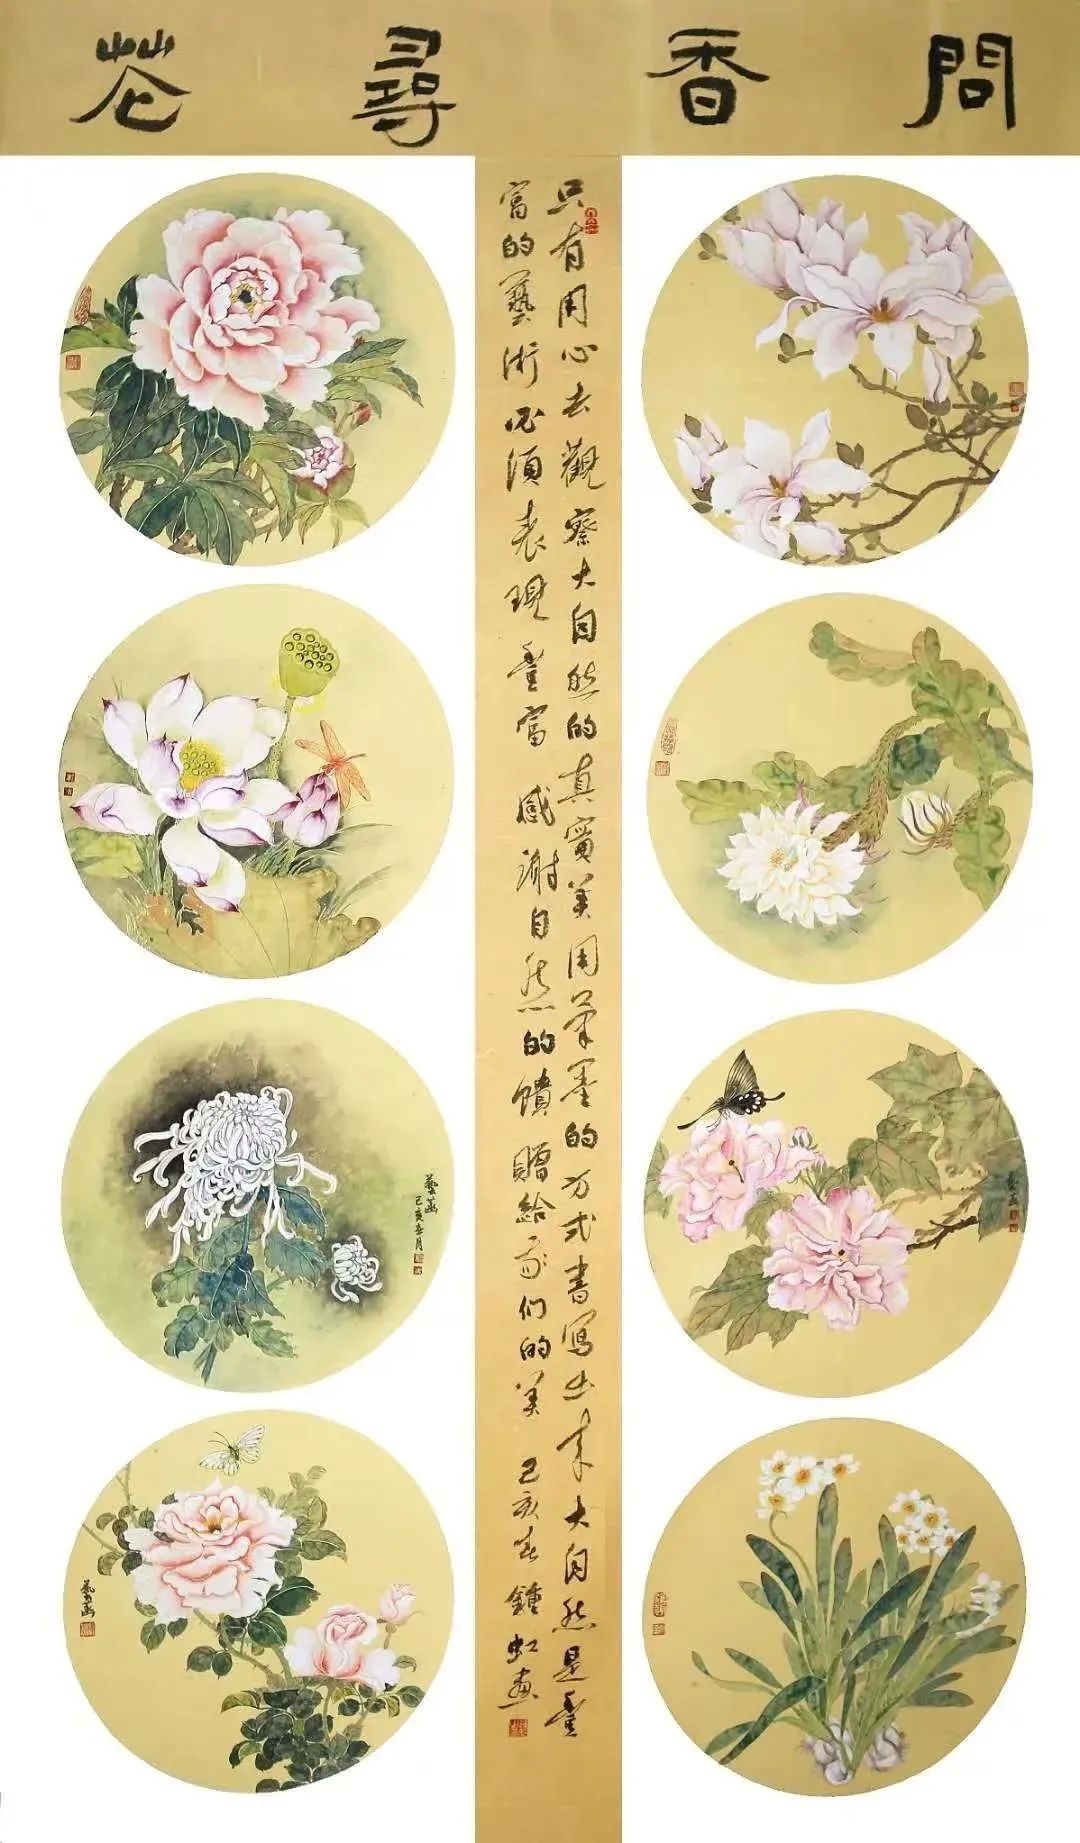 問香尋花
只有用心去觀察大自然的真實美用筆墨的方式書寫出來大自然是豐
富的藝術必須表現豐富 感謝自然的饋贈給我們的美 己亥春鍾虹画
藝菡
己亥春月
藝菡
藝菡